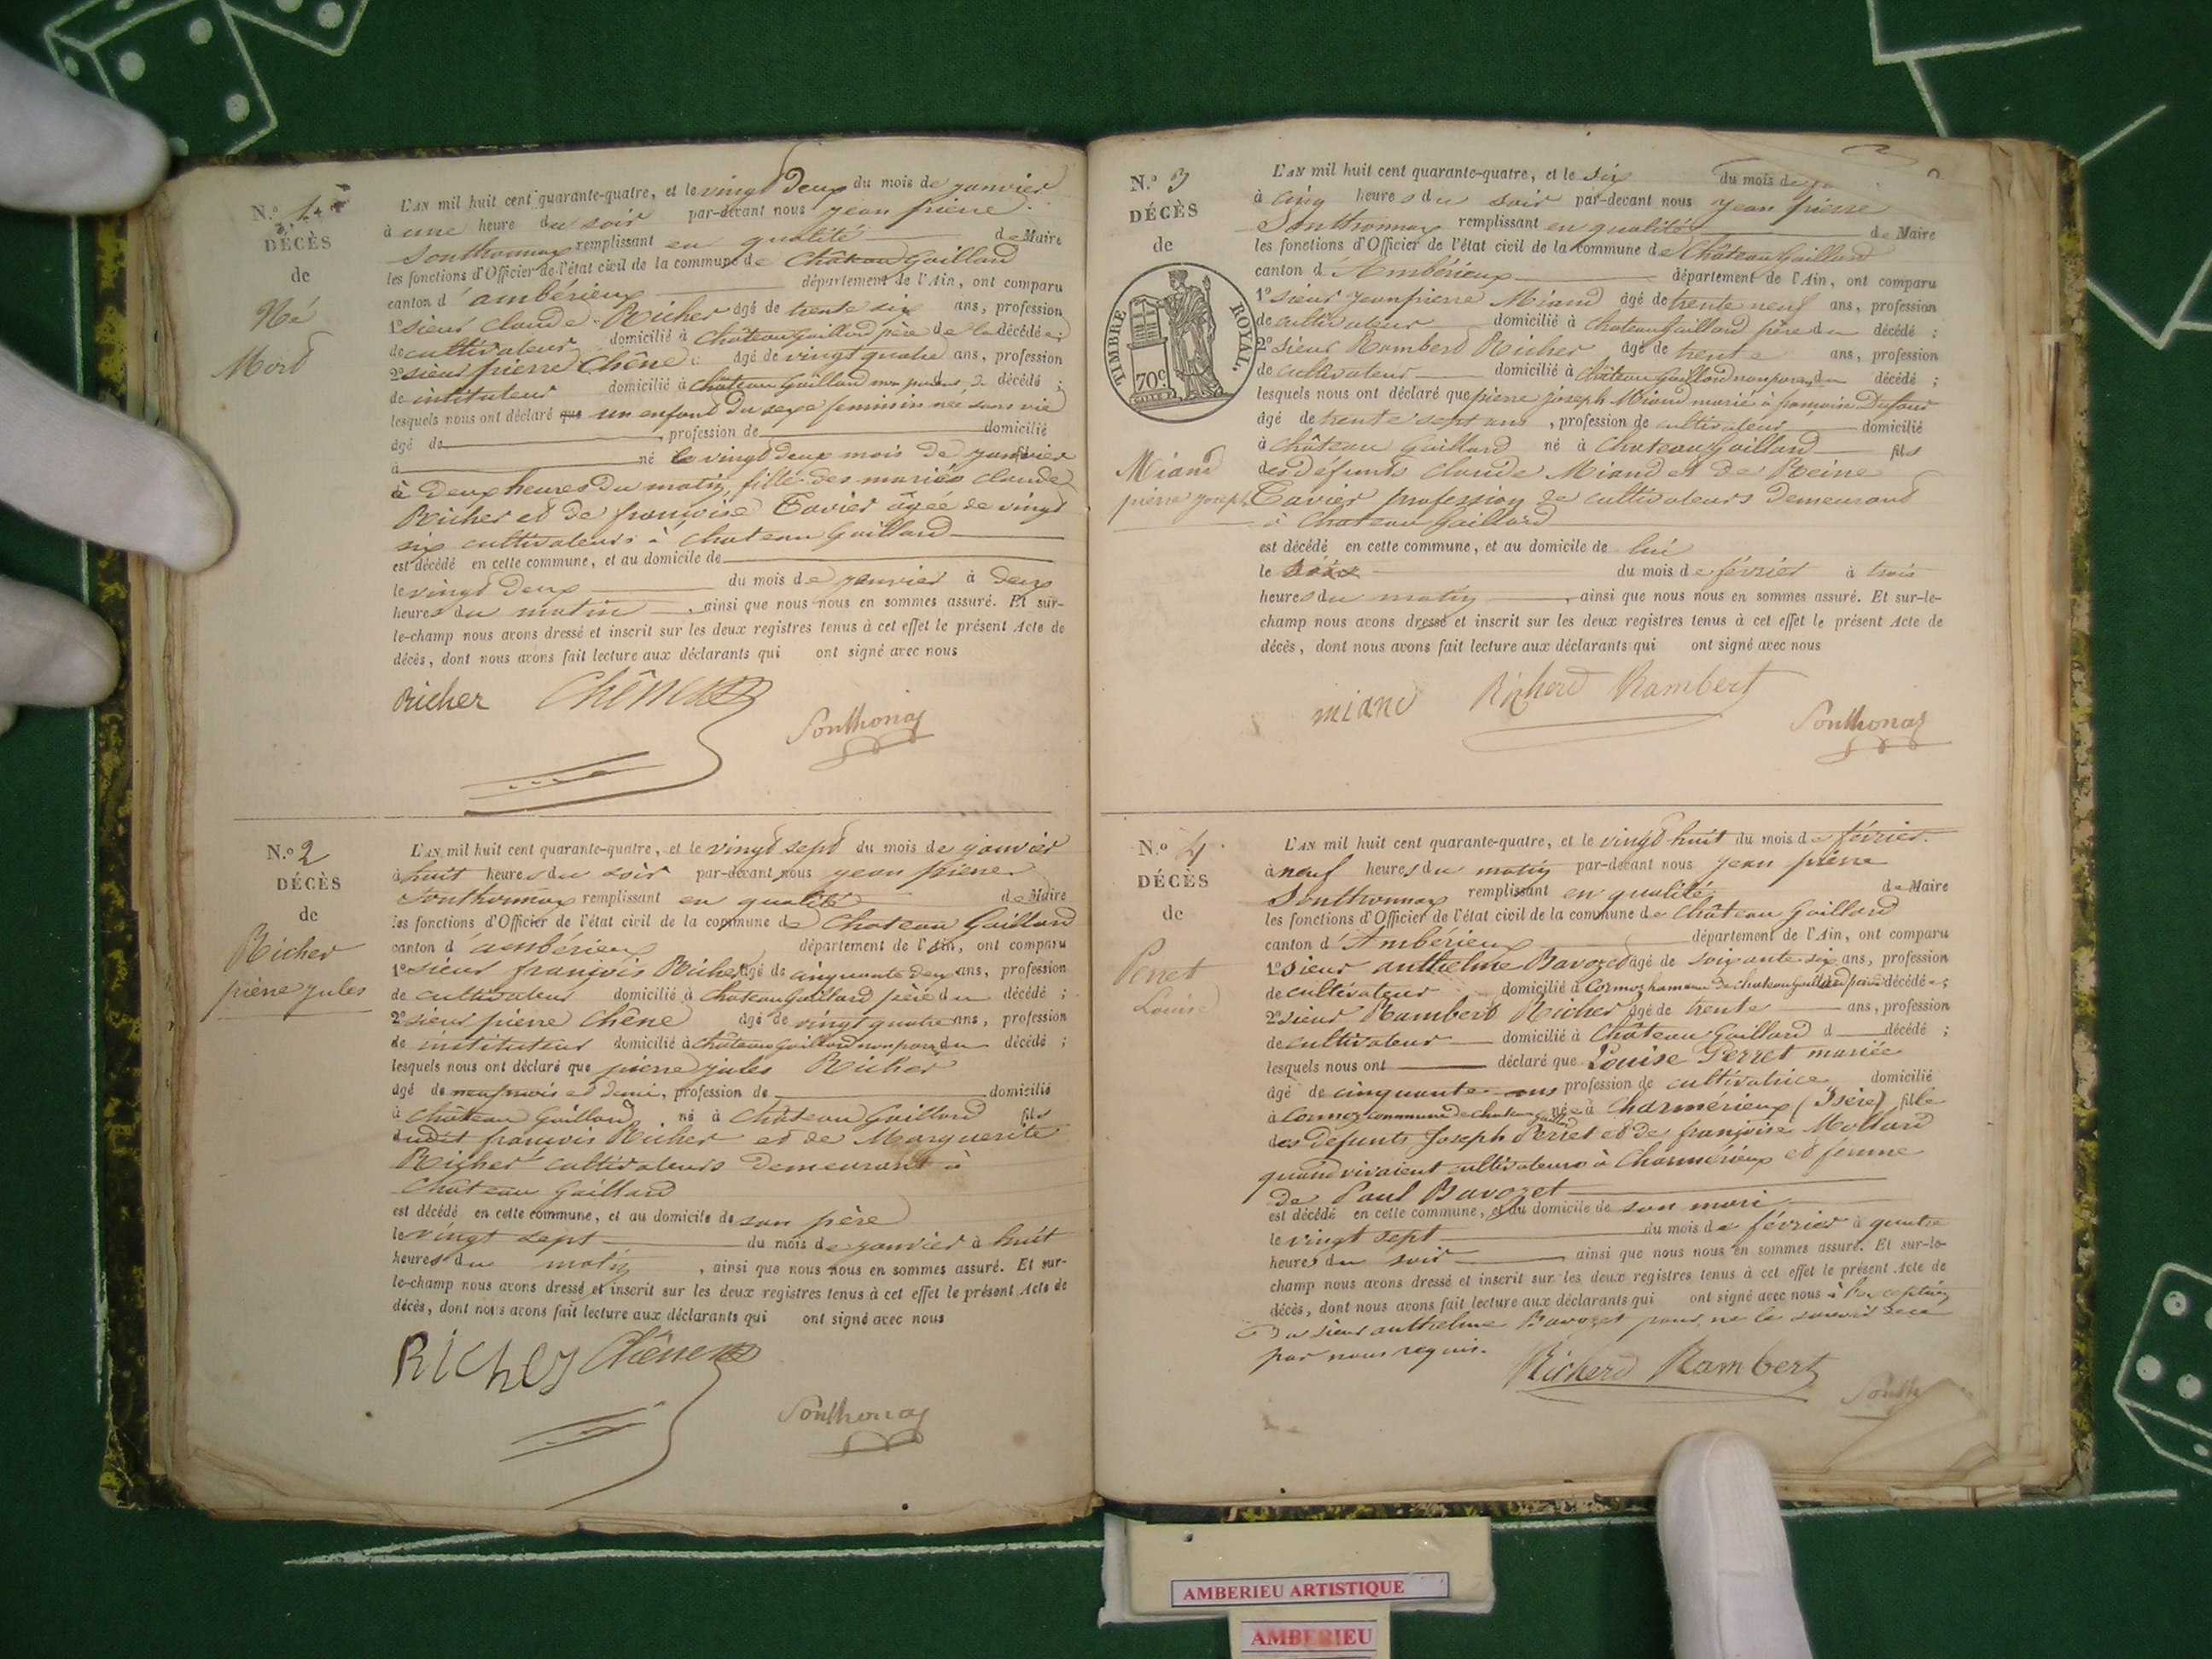 N.º 1
DÉCÈS
de
Né
Mord
L'AN mil huit cent quarante-quatre, et le vingt deux du mois de janvier
à une heure du soir par-devant nous jean pierre
Sonthonnax remplissant en qualité de Maire
les fonctions d'Officier de l'état civil de la commune de Château Gaillard
canton d'ambérieux département de l'Ain, ont comparu
1º sieur claude Richer âgé de trente six ans, profession
de cultivateur domicilié à Château Gaillard père de la décédée ;
2º sieur pierre Chêne âgé de vingt quatre ans, profession
de instituteur domicilié à Château Gaillard non décédé ;
lesquels nous ont déclaré que un enfant du sexe feminin née sans vie
âgé de profession de domicilié
à né le vingt deux mois de janvier
à Deux heures Du matin, fille des mariés claude
Richer et de françoise Tavier âgée de vingt
six cultivateurs à chateau Gaillard
est décédé en cette commune, et au domicile de
le vingt deux du mois de janvier à deux
heures du matin, ainsi que nous nous en sommes assuré. Et sur-
le-champ nous avons dressé et inscrit sur les deux registres tenus à cet effet le présent Acte de
décès, dont nous avons fait lecture aux déclarants qui ont signé avec nous
Richer Chêne
Sonthonax
N.º 2
DÉCÈS
de
Richer
pierre jules
L'AN mil huit cent quarante-quatre, et le vingt sept du mois de janvier
à huit heures du soir par-devant nous jean pierre
Sonthonnax remplissant en qualité de Maire
les fonctions d'Officier de l'état civil de la commune de Chateau Gaillard
canton d'ambérieux département de l'Ain, ont comparu
1º sieur françois Richer âgé de cinquante deux ans, profession
de cultivateur domicilié à Chateau Gaillard père du décédé ;
2º sieur pierre Chêne âgé de vingt quatre ans, profession
de instituteur domicilié à Château Gaillard non parent du décédé ;
lesquels nous ont déclaré que pierre jules Richer
âgé de neuf mois et demi, profession de domicilié
à Château Gaillard, né à Château Gaillard fils
dudit françois Richer et de Marguerite
Richer cultivateurs demeurant à
Château Gaillard
est décédé en cette commune, et au domicile de son père
le vingt sept du mois de janvier à huit
heures du matin, ainsi que nous nous en sommes assuré. Et sur-
le-champ nous avons dressé et inscrit sur les deux registres tenus à cet effet le présent Acte de
décès, dont nous avons fait lecture aux déclarants qui ont signé avec nous
Richer Chêne
Sonthonax
N.º 3
DÉCÈS
de
TIMBRE ROYAL
70c
Miand
pierre joseph
L'AN mil huit cent quarante-quatre, et le six du mois de
à cinq heures du soir par-devant nous jean pierre
Sonthonnax remplissant en qualité de Maire
les fonctions d'Officier de l'état civil de la commune de Château Gaillard
canton d'Ambérieux département de l'Ain, ont comparu
1º sieur jean pierre Miand âgé de trente neuf ans, profession
de cultivateur domicilié à Chateau Gaillard frère du décédé ;
2º sieur Rambert Richer âgé de trente ans, profession
de cultivateur domicilié à Château Gaillard non parent du décédé ;
lesquels nous ont déclaré que pierre joseph Miand marié à françoise Dufour
âgé de trente sept ans, profession de cultivateur domicilié
à château Gaillard né à Chateau Gaillard fils
des défunts claude Miand et de Reine
Tavier profession de cultivateurs demeurant
à Chateau Gaillard
est décédé en cette commune, et au domicile de lui
le six du mois de février à trois
heures du matin, ainsi que nous nous en sommes assuré. Et sur-le-
champ nous avons dressé et inscrit sur les deux registres tenus à cet effet le présent Acte de
décès, dont nous avons fait lecture aux déclarants qui ont signé avec nous
miand Richerd Rambert
Sonthonax
N.º 4
DÉCÈS
de
Perret
Louise
L'AN mil huit cent quarante-quatre, et le vingt huit du mois de février
à neuf heures du matin par-devant nous jean pierre
Sonthonnax remplissant en qualité de Maire
les fonctions d'Officier de l'état civil de la commune de Château Gaillard
canton d'Ambérieux département de l'Ain, ont comparu
1º sieur anthelme Bavozet âgé de soixante six ans, profession
de cultivateur domicilié à Cormoz hameau de chateau Gaillard décédée ;
2º sieur Rambert Richer âgé de trente ans, profession
de cultivateur domicilié à Château Gaillard d décédé ;
lesquels nous ont déclaré que Louise Perret mariée
âgé de cinquante ans profession de cultivatrice domicilié
à Cormoz commune de chateau Gaillard née à Charmérieux (Isère) fille
des défunts Joseph Perret et de françoise Mollard
quand vivaient cultivateurs à Charmérieux et femme
de Paul Bavozet
est décédé en cette commune, et au domicile de son mari
le vingt sept du mois de février à quatre
heures du soir ainsi que nous nous en sommes assuré. Et sur-le-
champ nous avons dressé et inscrit sur les deux registres tenus à cet effet le présent Acte de
décès, dont nous avons fait lecture aux déclarants qui ont signé avec nous à l'exception
du sieur anthelme Bavozet pour ne le savoir de ce
par nous requis.
Richerd Rambert
Sonth
AMBERIEU ARTISTIQUE
AMBERIEU